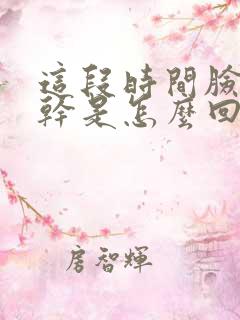 這段時間臉
幹是怎麼回
房智輝